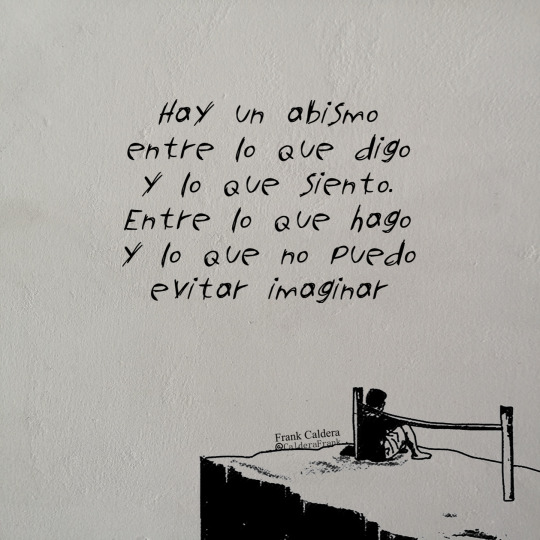 Hay un abismo
entre lo que digo
y lo que siento.
Entre lo que hago
y lo que no puedo
evitar imaginar
Frank Caldera
@CalderaFrank